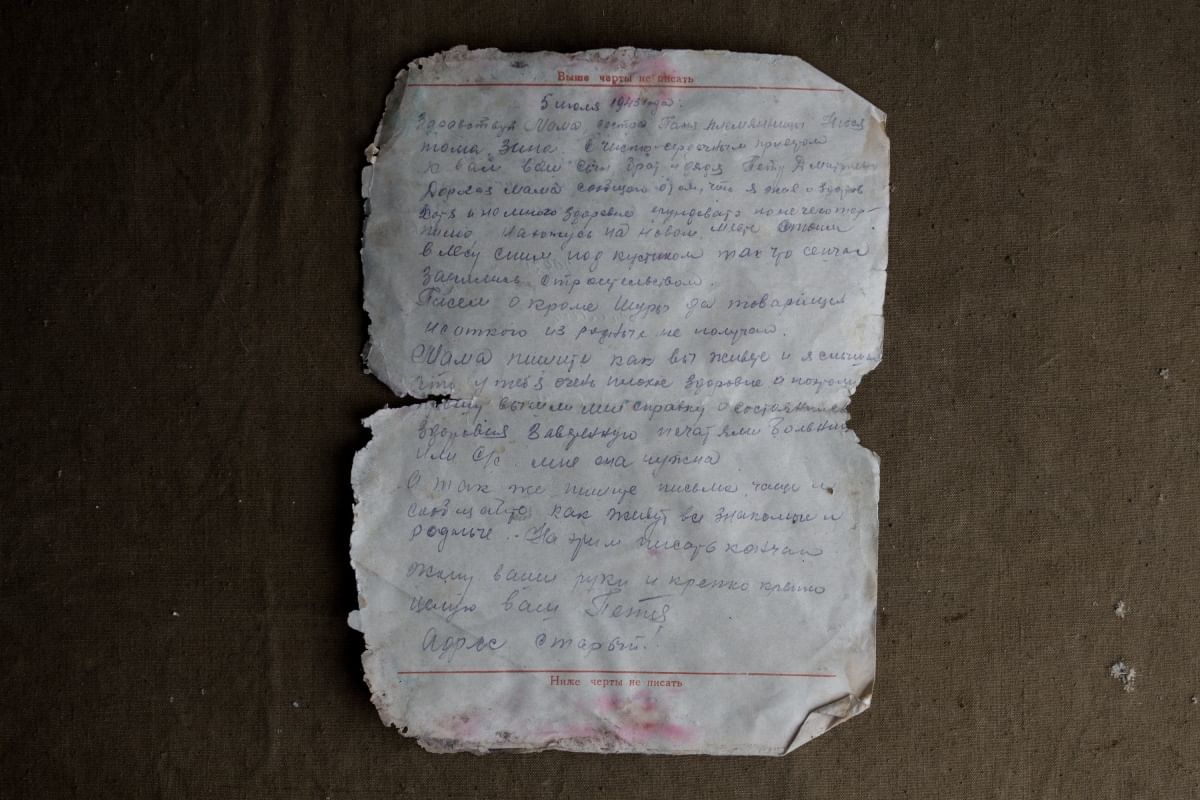 Выше черты не писать
5 июля 1945 года.
Здравствуй Мама, сестра Таня племянницы Нюся
тома Зина. С чисто сердечным приветом
к вам ваш сын брат и дядя Петр
Дорогая мама сообщаю о том, что я жив и здоров
Хотя и не много здоровье
Нахожусь на новом месте Стоим
в лесу спим под кустиком так что сейчас
Занились строительством.
Писем о кроме Шуры да товарищей
не откого из родные не получаю.
Мама пишите как вы живете и я слышал
что у тебя очень плохое здоровье а потому
прошу вышли мне справку о состоянии
здоровья Заверенную печатями больницы
Или С/с. мне она нужна
А так же пишите письма чаще и
сообщайте как живут все знакомые и
родные. На этим писать кончаю
Жму ваши руки и крепко крепко
целую ваш Петя
Адрес старый!
Ниже черты не писать